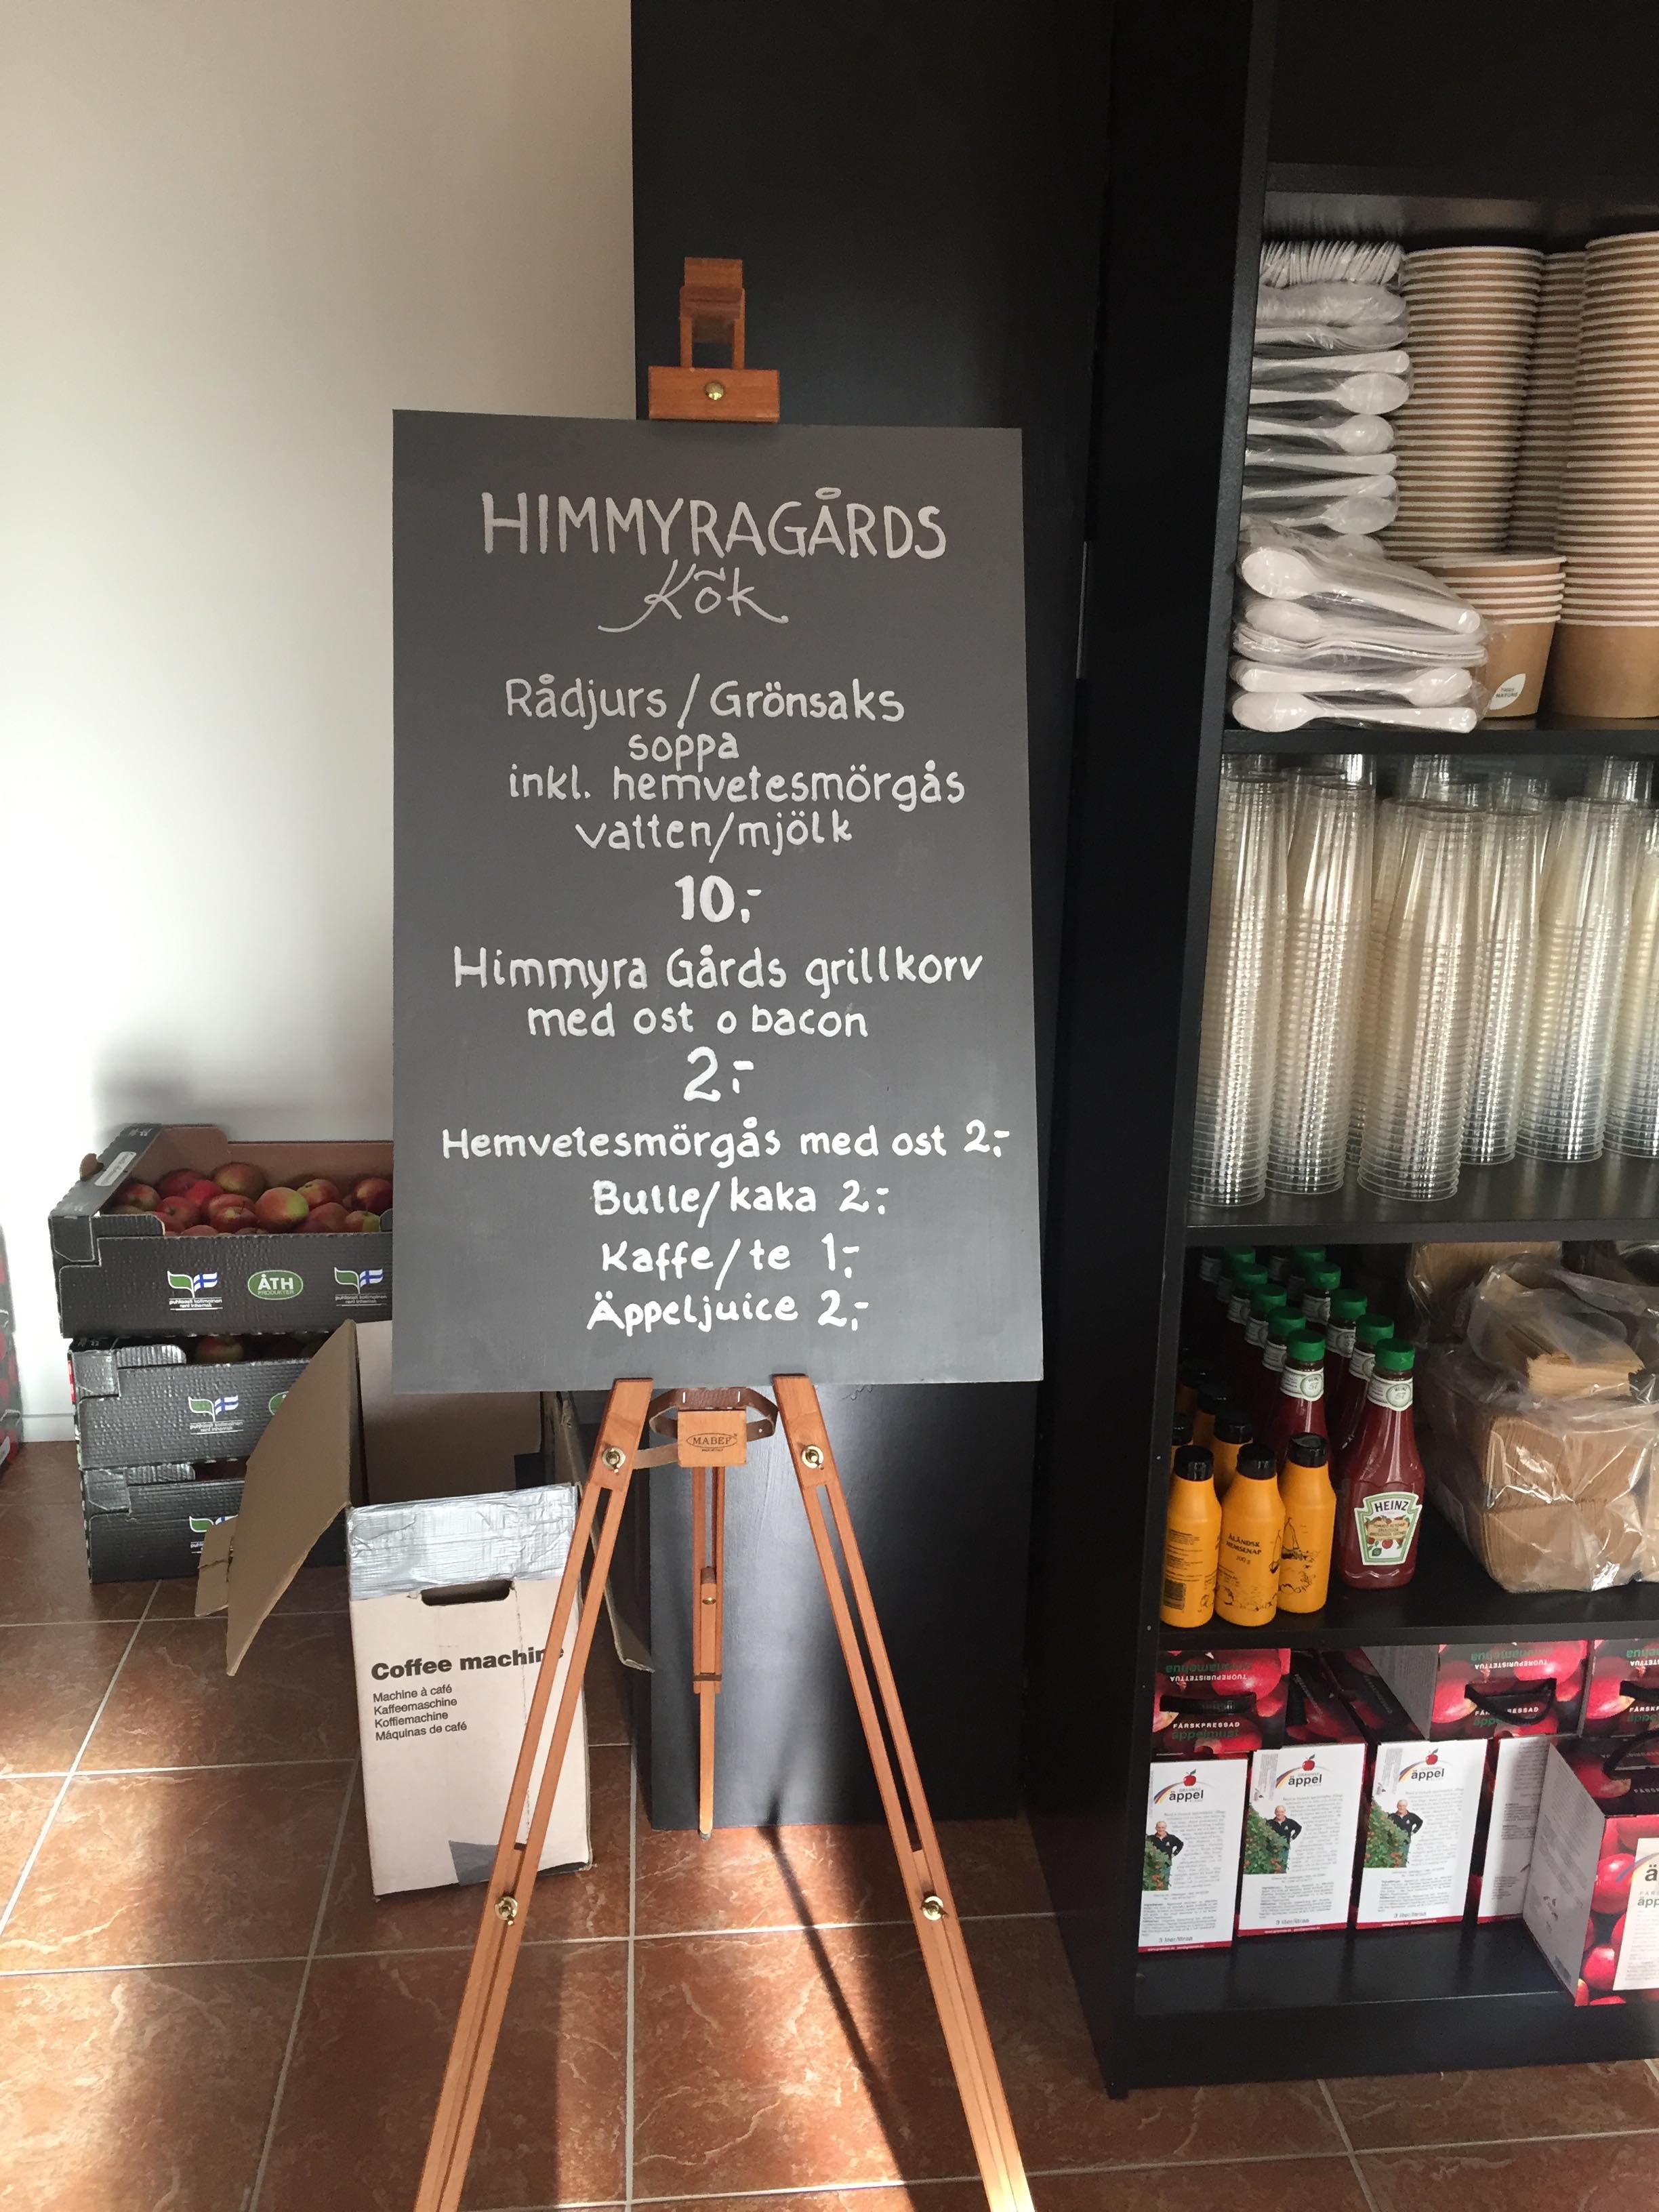 HIMMYRAGÅRDS
Kök
Rådjurs / Grönsaks
soppa
inkl. hemvetesmörgås
vatten/mjölk
10:-
Himmyra Gårds grillkorv
med ost o bacon
2:-
Hemvetesmörgås med ost 2:-
Bulle/kaka 2:-
Kaffe/te 1:-
Äppeljuice 2:-
MABEF
ÅTH
PRODUKTER
Coffee machine
Machine à café
Kaffeemaschine
Koffiemachine
Máquinas de café
HEINZ
ÅLÄNDSK
200 g
TUOREPURISTETTUA
FÄRSKPRESSAD
äppelmust
äppel
äppel
äppel